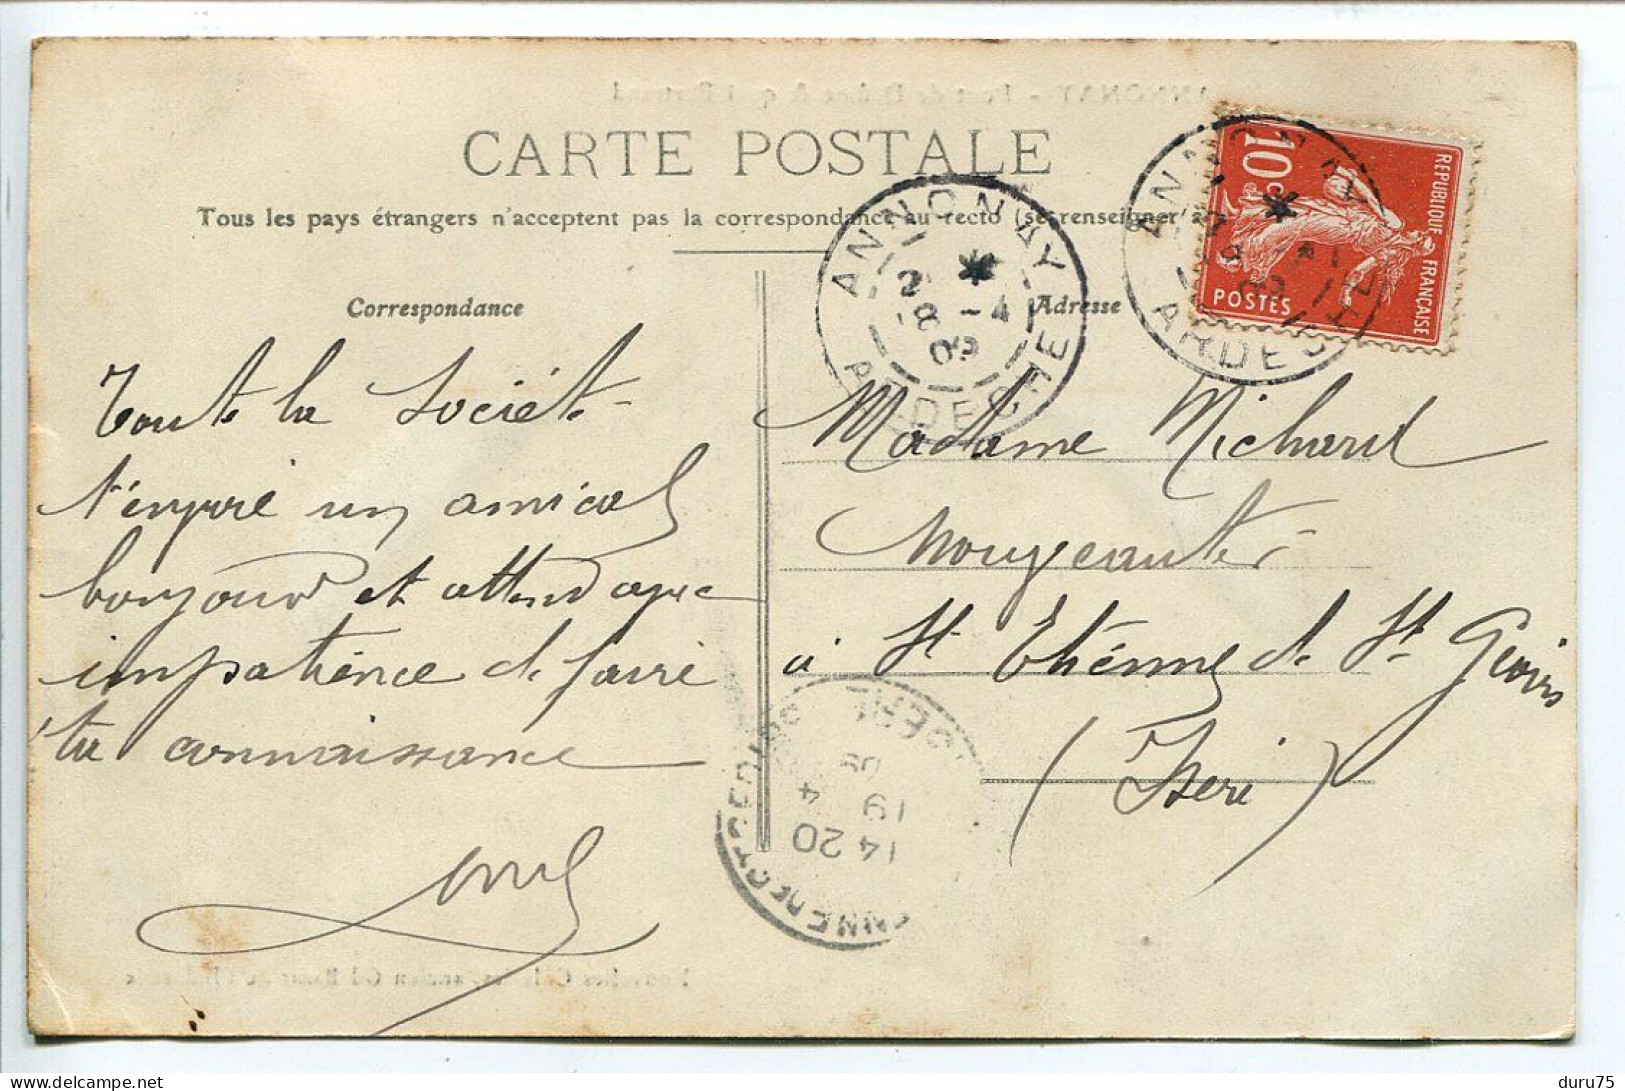 CARTE POSTALE
Tous les pays étrangers n'acceptent pas la correspondance au recto (se renseigner à
Correspondance
Toute la Société
t'envoie un amical
bonjour et attend avec
impatience de faire
ta connaissance
Adresse
Madame Michard
Nouveautés
à St Etienne de St Geoirs
(Isère)
ANNONAY
ARDECHE
ANNONAY
ARDECHE
10c
REPUBLIQUE FRANÇAISE
POSTES
ISERE
14 20
19 4
09
delcampe.net
duru75